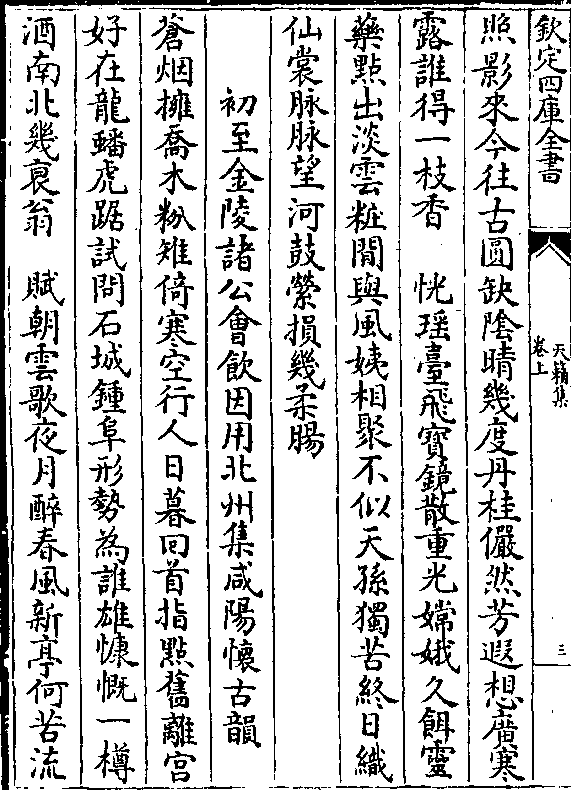 欽定四庫全書
天籟集
卷上
三
照影來今往古圓缺隂晴幾度丹桂儼然芳遐想廣寒
露誰得一枝香　恍瑶臺飛寶鏡散重光嫦娥久餌靈
藥點出淡雲粧閒與風姨相聚不似天孫獨苦終日織
仙裳脉脉望河鼓縈損幾柔腸
初至金陵諸公會飲因用北州集咸陽懷古韻
蒼烟擁喬木粉雉倚寒空行人日暮回首指點舊離宫
好在龍蟠虎踞試問石城鍾阜形勢為誰雄慷慨一樽
酒南北幾衰翁　賦朝雲歌夜月醉春風新亭何苦流